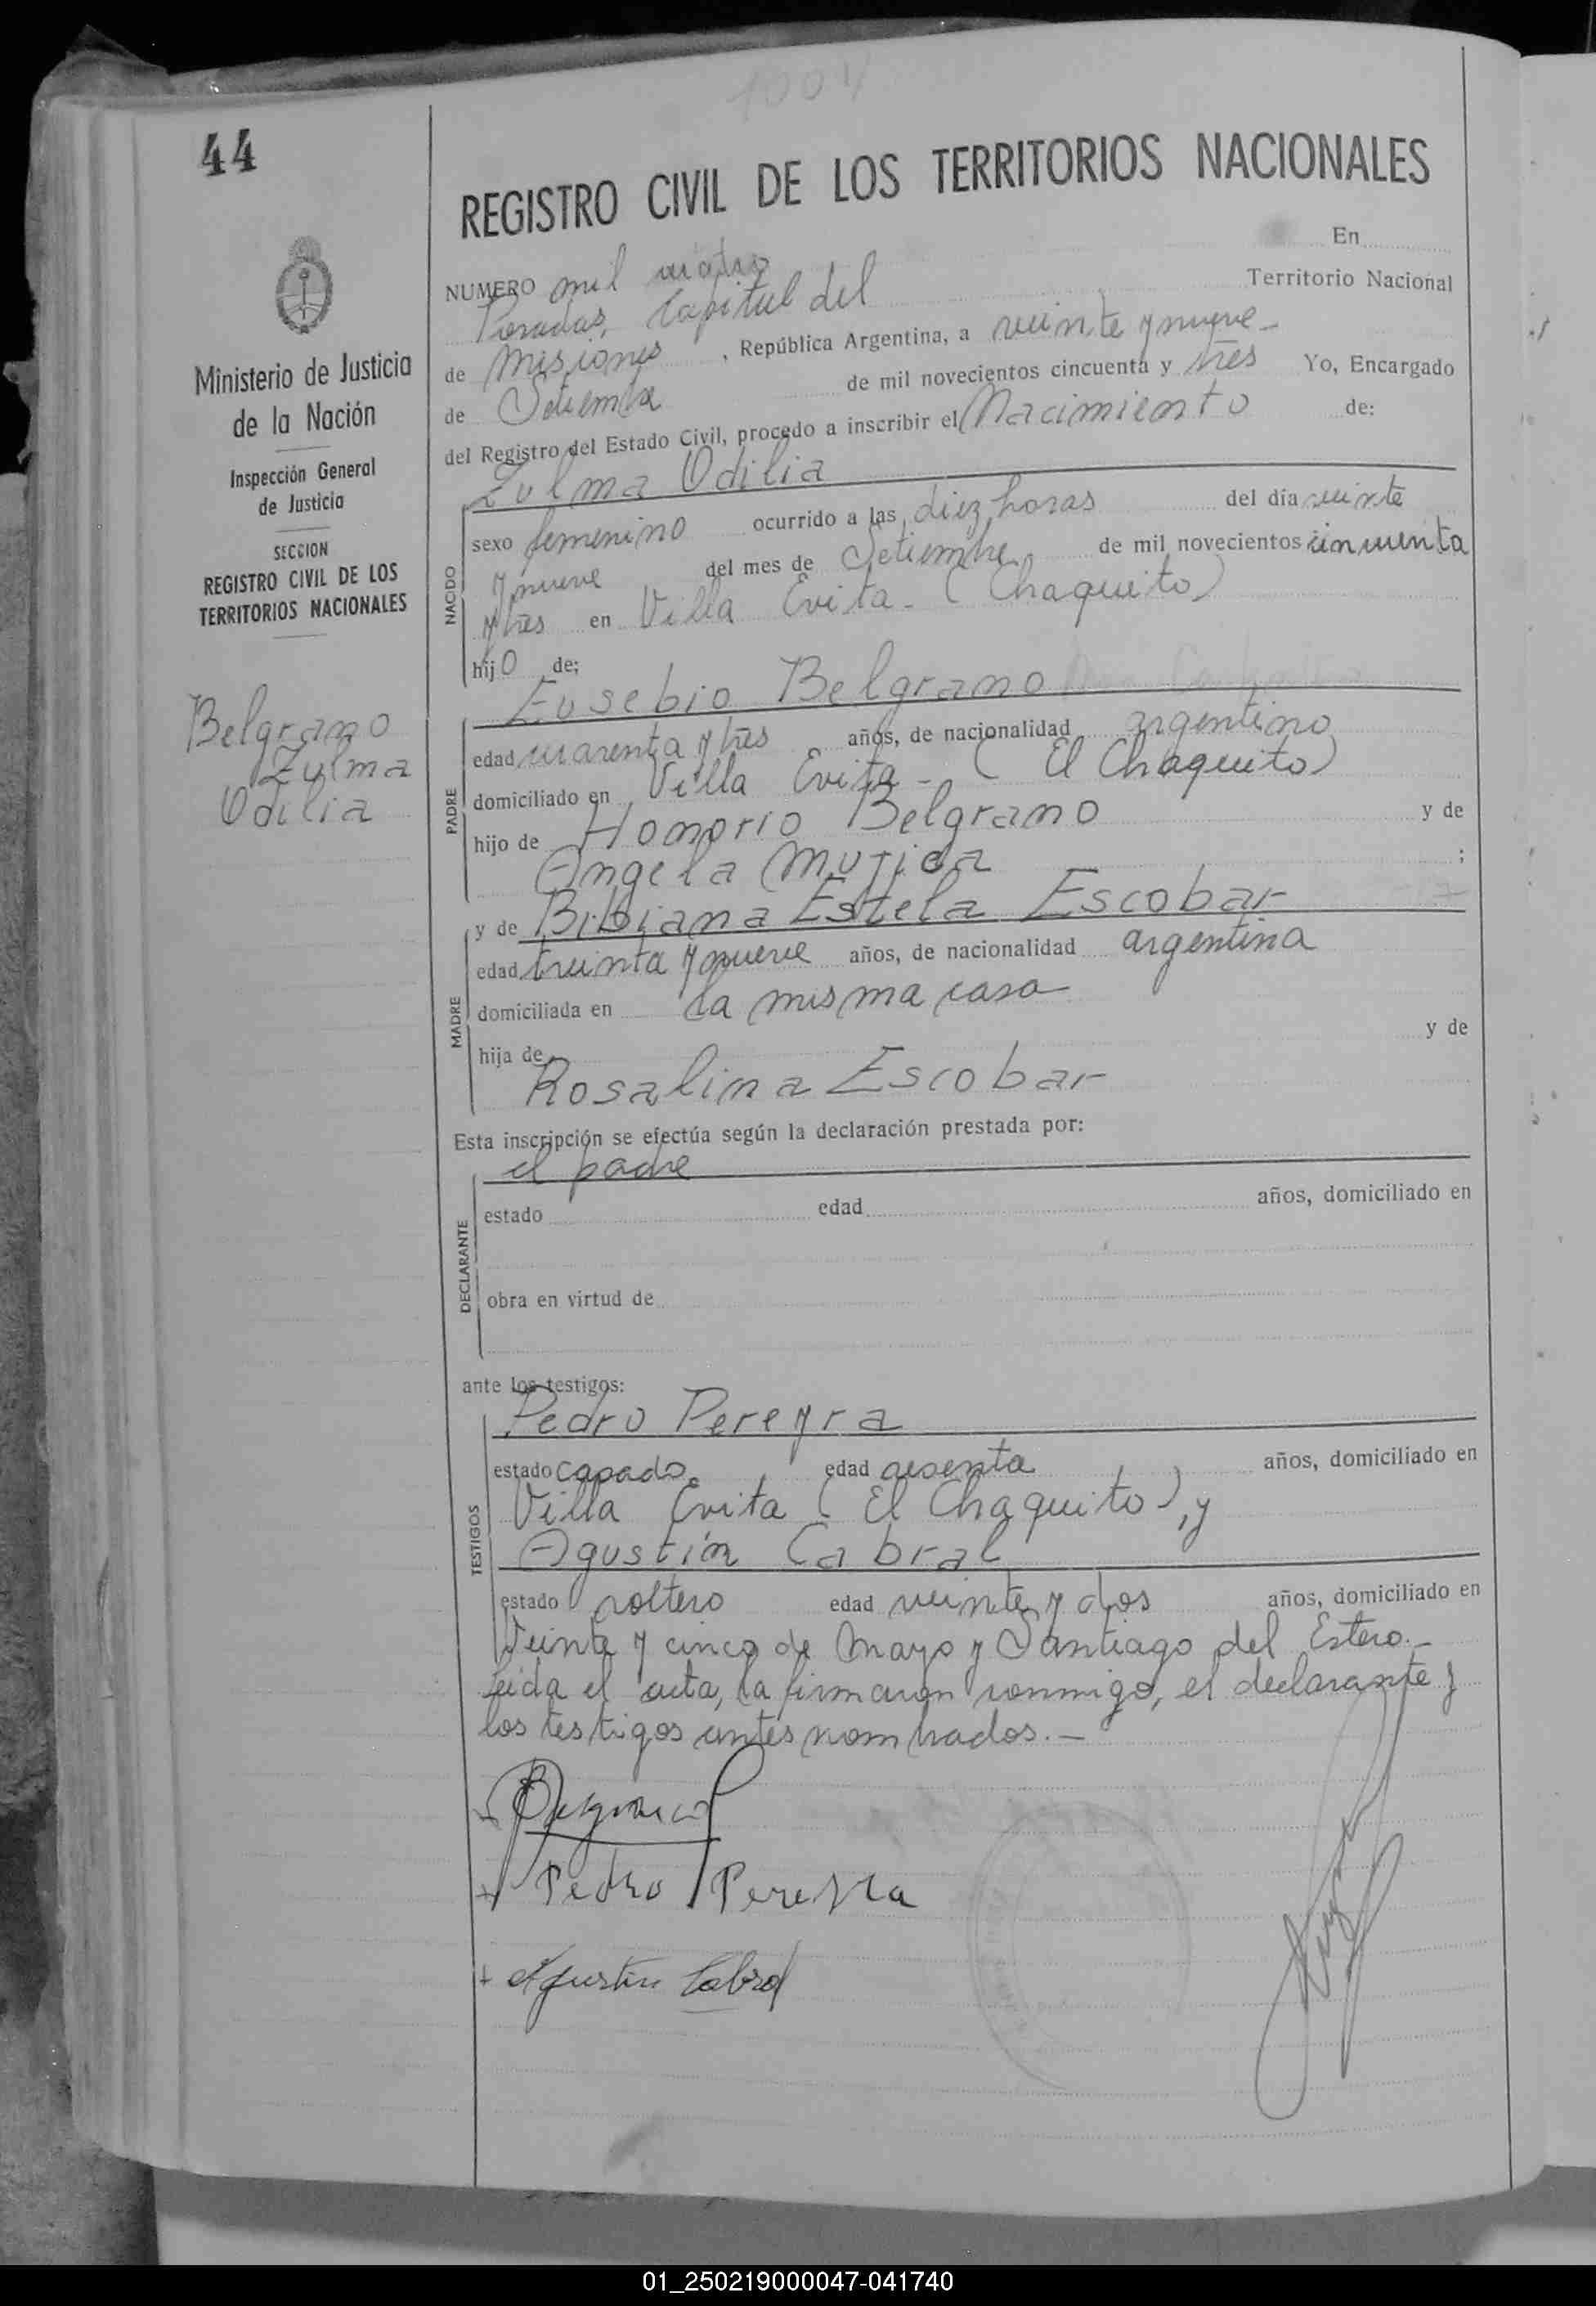 1004
44
REGISTRO CIVIL DE LOS TERRITORIOS NACIONALES
Ministerio de Justicia
de la Nación
Inspección General
de Justicia
SECCION
REGISTRO CIVIL DE LOS
TERRITORIOS NACIONALES
Belgrano
Zulma
Odilia
NUMERO mil cuatro En
Posadas, Capital del Territorio Nacional
de Misiones, República Argentina, a veinte y nueve-
de Setiembre de mil novecientos cincuenta y tres Yo, Encargado
del Registro del Estado Civil, procedo a inscribir el Nacimiento de:
Zulma Odilia
NACIDO
sexo femenino ocurrido a las diez horas del día veinte
y nueve del mes de Setiembre de mil novecientos cincuenta
y tres en Villa Evita - (Chaquito)
hijo de:
Eusebio Belgrano
PADRE
edad cuarenta y tres años, de nacionalidad argentino
domiciliado en Villa Evita - (El Chaquito)
hijo de Honorio Belgrano y de
Angela Mujica ;
y de Bibiana Estela Escobar
MADRE
edad treinta y nueve años, de nacionalidad argentina
domiciliada en la misma casa
hija de y de
Rosalina Escobar
Esta inscripción se efectúa según la declaración prestada por:
el padre
DECLARANTE
estado edad años, domiciliado en
obra en virtud de
ante los testigos:
Pedro Pereyra
TESTIGOS
estado casado edad sesenta años, domiciliado en
Villa Evita (El Chaquito), y
Agustín Cabral
estado soltero edad veinte y dos años, domiciliado en
Veinte y cinco de Mayo y Santiago del Estero.-
Leida el acta, la firmaron conmigo, el declarante y
los testigos antes nombrados.-
Pedro Pereyra
Agustin Cabral
01_250219000047-041740